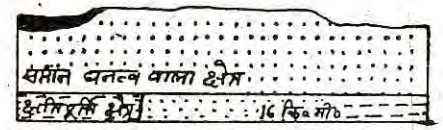 समान घनत्व वाला क्षेत्र
क्षतिपूर्ति क्षेत्र 16 कि० मी०